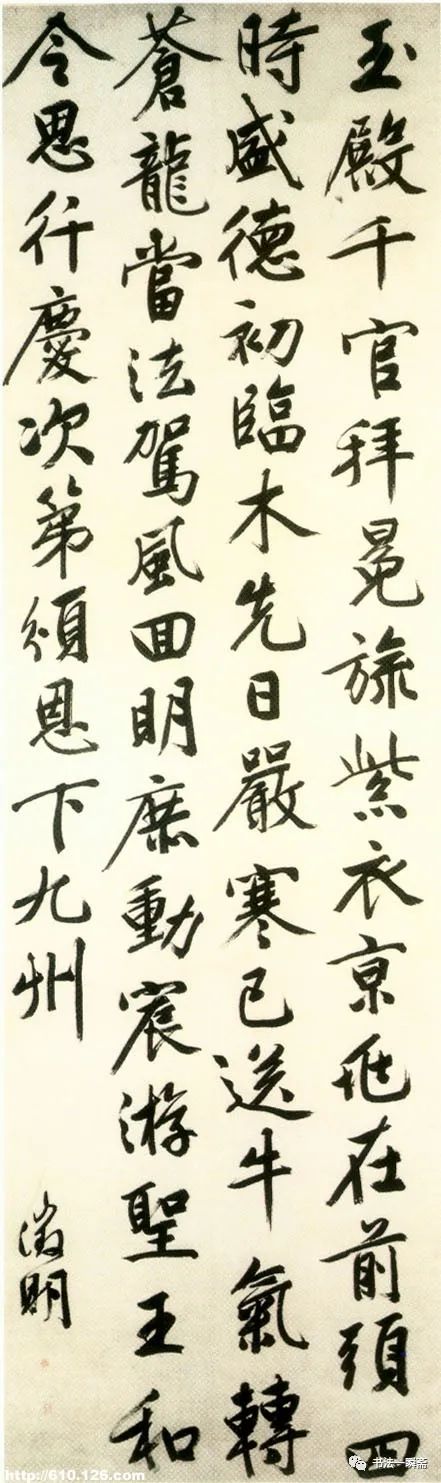 玉殿千官拜冕旒紫衣京兆在前頭四
時盛德初臨木先日嚴寒已送牛氣轉
蒼龍當法駕風囬明庶動宸游聖王和
令思行慶次第頒恩下九州
徵明
http://610.126.com
书法一瞬斋